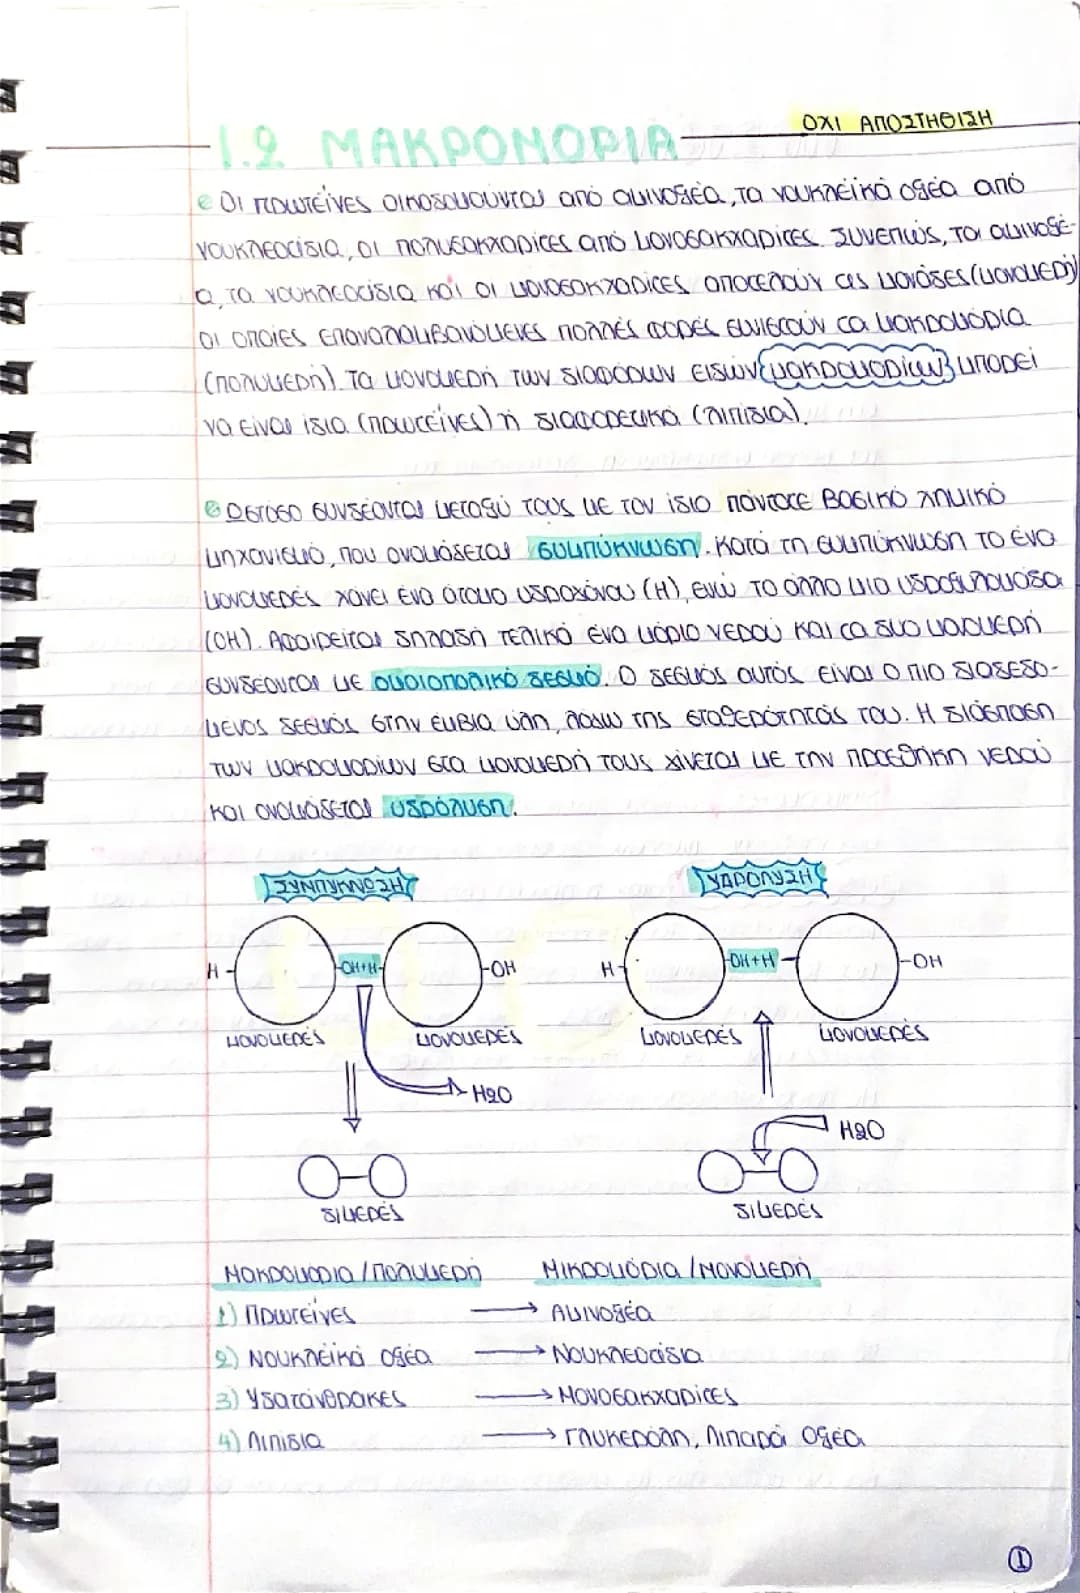 ΟΧΙ ΑΠΟΣΤΗΘΙΣΗ
1.2 ΜΑΚΡΟΜΟΡΙΑ
Οι πρωτεΐνες οικοδομούνται από αμινοξέα, τα νουκλεϊκά οξέα από
νουκλεοτίδια, οι πολυσακχαρίτες από μονοσακχαρίτες. Συνεπώς, τα αμινοξέ-
α, τα νουκλεοτίδια και οι μονοσακχαρίτες αποτελούν τις μονάδες (μονομερή)
οι οποίες επαναλαμβανόμενες πολλές φορές συνιστούν τα μακρομόρια
(πολυμερή). Τα μονομερή των διαφόρων ειδών μακρομορίων μπορεί
να είναι ίδια (πρωτεΐνες) ή διαφορετικά (λιπίδια).
Ωστόσο συνδέονται μεταξύ τους με τον ίδιο πάντοτε βασικό χημικό
μηχανισμό, που ονομάζεται συμπύκνωση. Κατά τη συμπύκνωση το ένα
μονομερές χάνει ένα άτομο υδρογόνου (Η), ενώ το άλλο μια υδροξυλομάδα
(ΟΗ). Αφαιρείται δηλαδή τελικά ένα μόριο νερού και τα δυο μονομερή
συνδέονται με ομοιοπολικό δεσμό. Ο δεσμός αυτός είναι ο πιο διαδεδο-
μένος δεσμός στην έμβια ύλη, λόγω της σταθερότητάς του. Η διάσπαση
των μακρομορίων στα μονομερή τους γίνεται με την προσθήκη νερού
και ονομάζεται υδρόλυση.
ΣΥΝΠΥΚΝΩΣΗ ΥΔΡΟΛΥΣΗ
Η- -ΟΗ+Η- -ΟΗ Η- -ΟΗ+Η- -ΟΗ
μονομερές μονομερές μονομερές μονομερές
Η2Ο
Η2Ο
διμερές διμερές
Μακρομόρια/Πολυμερή Μικρομόρια/Μονομερή
1) Πρωτεΐνες → Αμινοξέα
2) Νουκλεϊκά Οξέα → Νουκλεοτίδια
3) Υδατάνθρακες → Μονοσακχαρίτες
4) Λιπίδια → Γλυκερόλη, Λιπαρά Οξέα
1